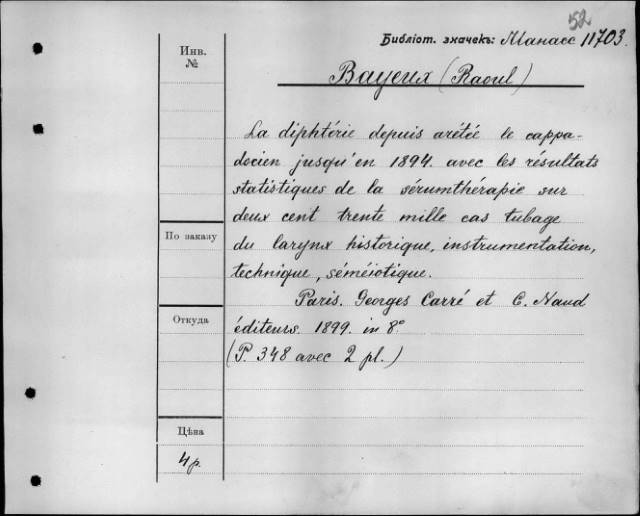 52
Библіот. значекъ: Манасс 11703.
Инв.
№
Bayeux (Raoul)
La diphtérie depuis arétée le cappa-
docien jusqu'en 1894. avec les résultats
statistiques de la sérumthérapie sur
deux cent trente mille cas tubage
По заказу
du larynx historique, instrumentation,
technique, séméiotique.
Paris. Georges Carré et C. Naud
Откуда
éditeurs. 1899. in 8°
(P. 348 avec 2 pl.)
Цѣна
4 р.